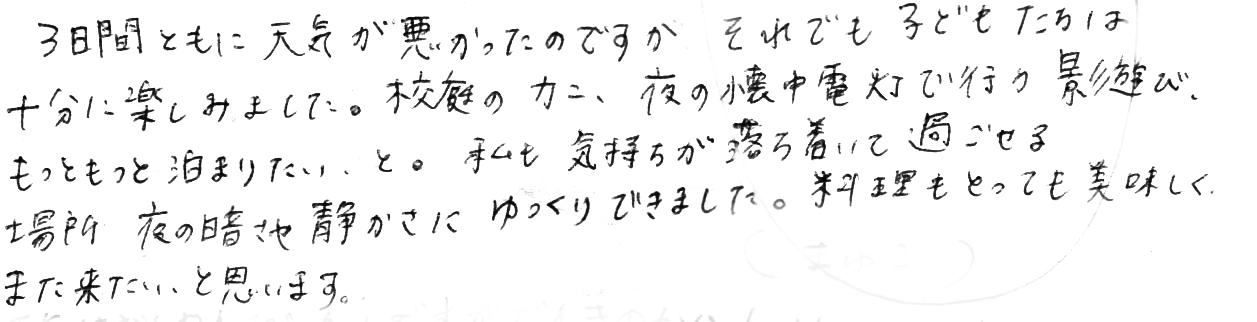 3日間ともに天気が悪かったのですが それでも子どもたちは
十分に楽しみました。校庭のカニ、夜の懐中電灯で行う影遊び、
もっともっと泊まりたい、と。私も気持ちが落ち着いて過ごせる
場所 夜の暗さや静かさに ゆっくりできました。料理もとっても美味しく、
また来たい、と思います。